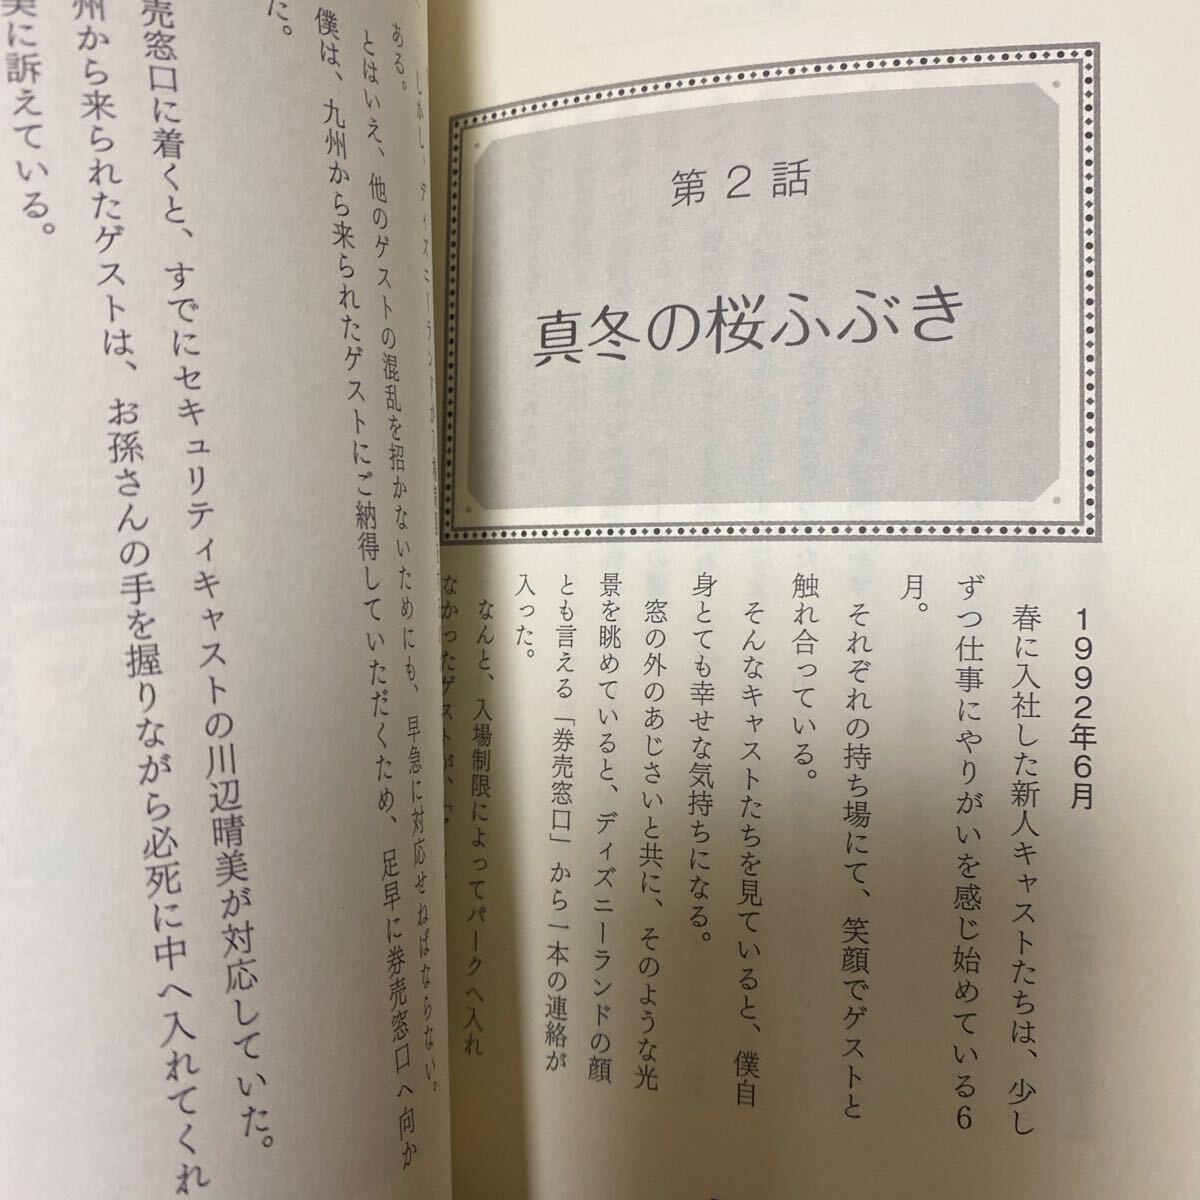 第2話
真冬の桜ふぶき
1992年6月
春に入社した新人キャストたちは、少し
ずつ仕事にやりがいを感じ始めている6
月。
それぞれの持ち場にて、笑顔でゲストと
触れ合っている。
そんなキャストたちを見ていると、僕自
身とても幸せな気持ちになる。
窓の外のあじさいと共に、そのような光
景を眺めていると、ディズニーランドの顔
とも言える「券売窓口」から一本の連絡が
入った。
なんと、入場制限によってパークへ入れ
なかったゲストが、「
しかし、ディズニーランド
ある。
とはいえ、他のゲストの混乱を招かないためにも、早急に対応せねばならない。
僕は、九州から来られたゲストにご納得していただくため、足早に券売窓口へ向か
た。
売窓口に着くと、すでにセキュリティキャストの川辺晴美が対応していた。
州から来られたゲストは、お孫さんの手を握りながら必死に中へ入れてくれ
美に訴えている。